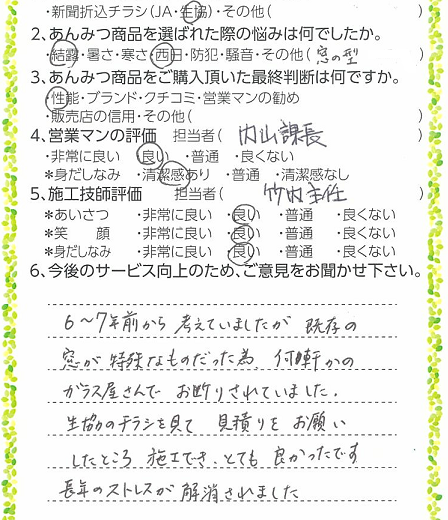 ・新聞折込チラシ(JA・生協)・その他(
2、あんみつ商品を選ばれた際の悩みは何でしたか。
・結露・暑さ・寒さ・西日・防犯・騒音・その他( 窓の型 )
3、あんみつ商品をご購入頂いた最終判断は何ですか。
・性能・ブランド・クチコミ・営業マンの勧め
・販売店の信用・その他(
4、営業マンの評価 担当者( 内山課長
・非常に良い ・良い ・普通 ・良くない
*身だしなみ ・清潔感あり ・普通 ・清潔感なし
5、施工技師評価 担当者( 竹内主任
*あいさつ ・非常に良い ・良い ・普通 ・良くない
*笑 顔 ・非常に良い ・良い ・普通 ・良くない
*身だしなみ ・非常に良い ・良い ・普通 ・良くない
6、今後のサービス向上のため、ご意見をお聞かせ下さい。
6〜7年前から 考えていましたが 既存の
窓が 特殊なものだった為、何軒かの
ガラス屋さんで お断りされていました.
生協のチラシを見て 見積りを お願い
したところ 施工でき、とても 良かったです
長年のストレスが 解消されました